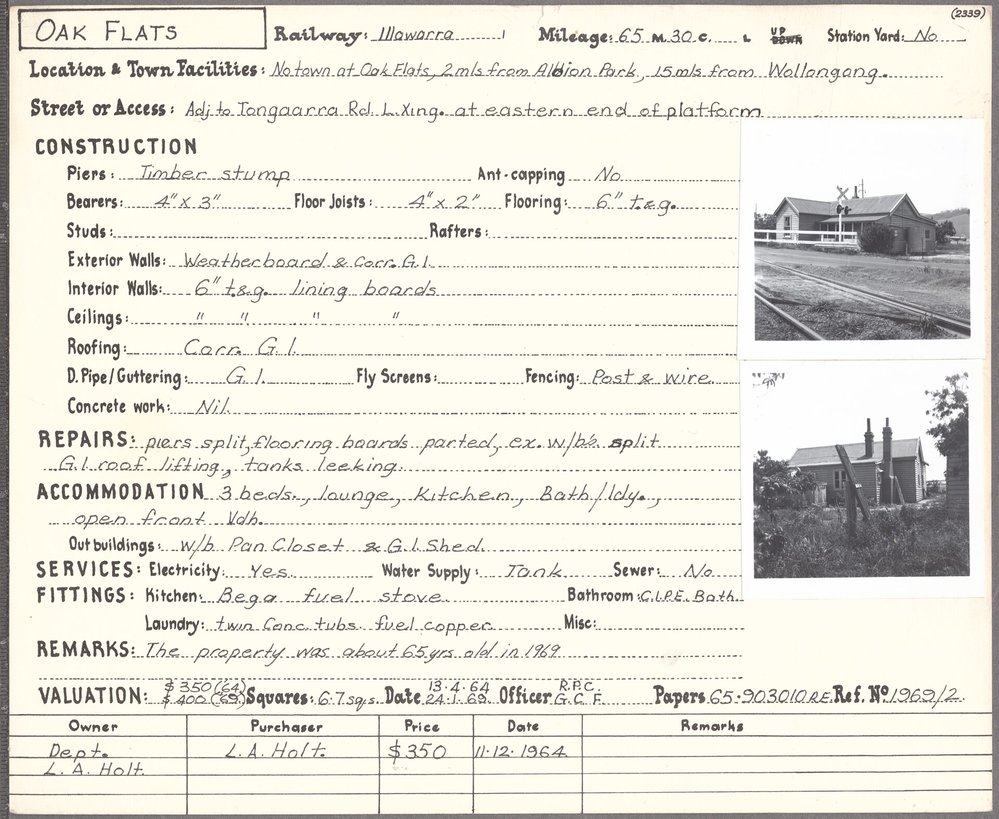 (2339)
OAK FLATS Railway: Illawarra Mileage: 65 M. 30 C. L UP DOWN Station Yard: No
Location & Town Facilities: No town at Oak Flats, 2 mls from Albion Park, 15 mls from Wollongong.
Street or Access: Adj to Tongaarra Rd. L. Xing. at eastern end of platform
CONSTRUCTION
Piers: Timber stump Ant-capping No
Bearers: 4" x 3" Floor Joists: 4" x 2" Flooring: 6" t.&g.
Studs: Rafters:
Exterior Walls: Weatherboard & Corr. G.I.
Interior Walls: 6" t.&g. lining boards
Ceilings: " " " "
Roofing: Corr. G.I.
D.Pipe/Guttering: G.I. Fly Screens: Fencing: Post & wire
Concrete work: Nil.
REPAIRS: piers split, flooring boards parted, ex. w/b's split
G.I. roof lifting, tanks leeking.
ACCOMMODATION 3 beds., lounge, Kitchen, Bath/ldy.,
open front Vdh.
Outbuildings: w/b Pan Closet & G.I. Shed.
SERVICES: Electricity: Yes Water Supply: Tank Sewer: No
FITTINGS: Kitchen: Bega fuel stove Bathroom: C.I.P.E. Bath
Laundry: twin Conc. tubs fuel copper Misc:
REMARKS: The property was about 65 yrs old in 1969
VALUATION: $350 (64) $400 (69) Squares: 6.7 sqs. Date 13.4.64 24.1.69 Officer R.P.C. G.C.F. Papers 65.903010 R.E. Ref. No 1969/2.
Owner Purchaser Price Date Remarks
Dept. L.A. Holt. $350 11.12.1964
L.A. Holt.